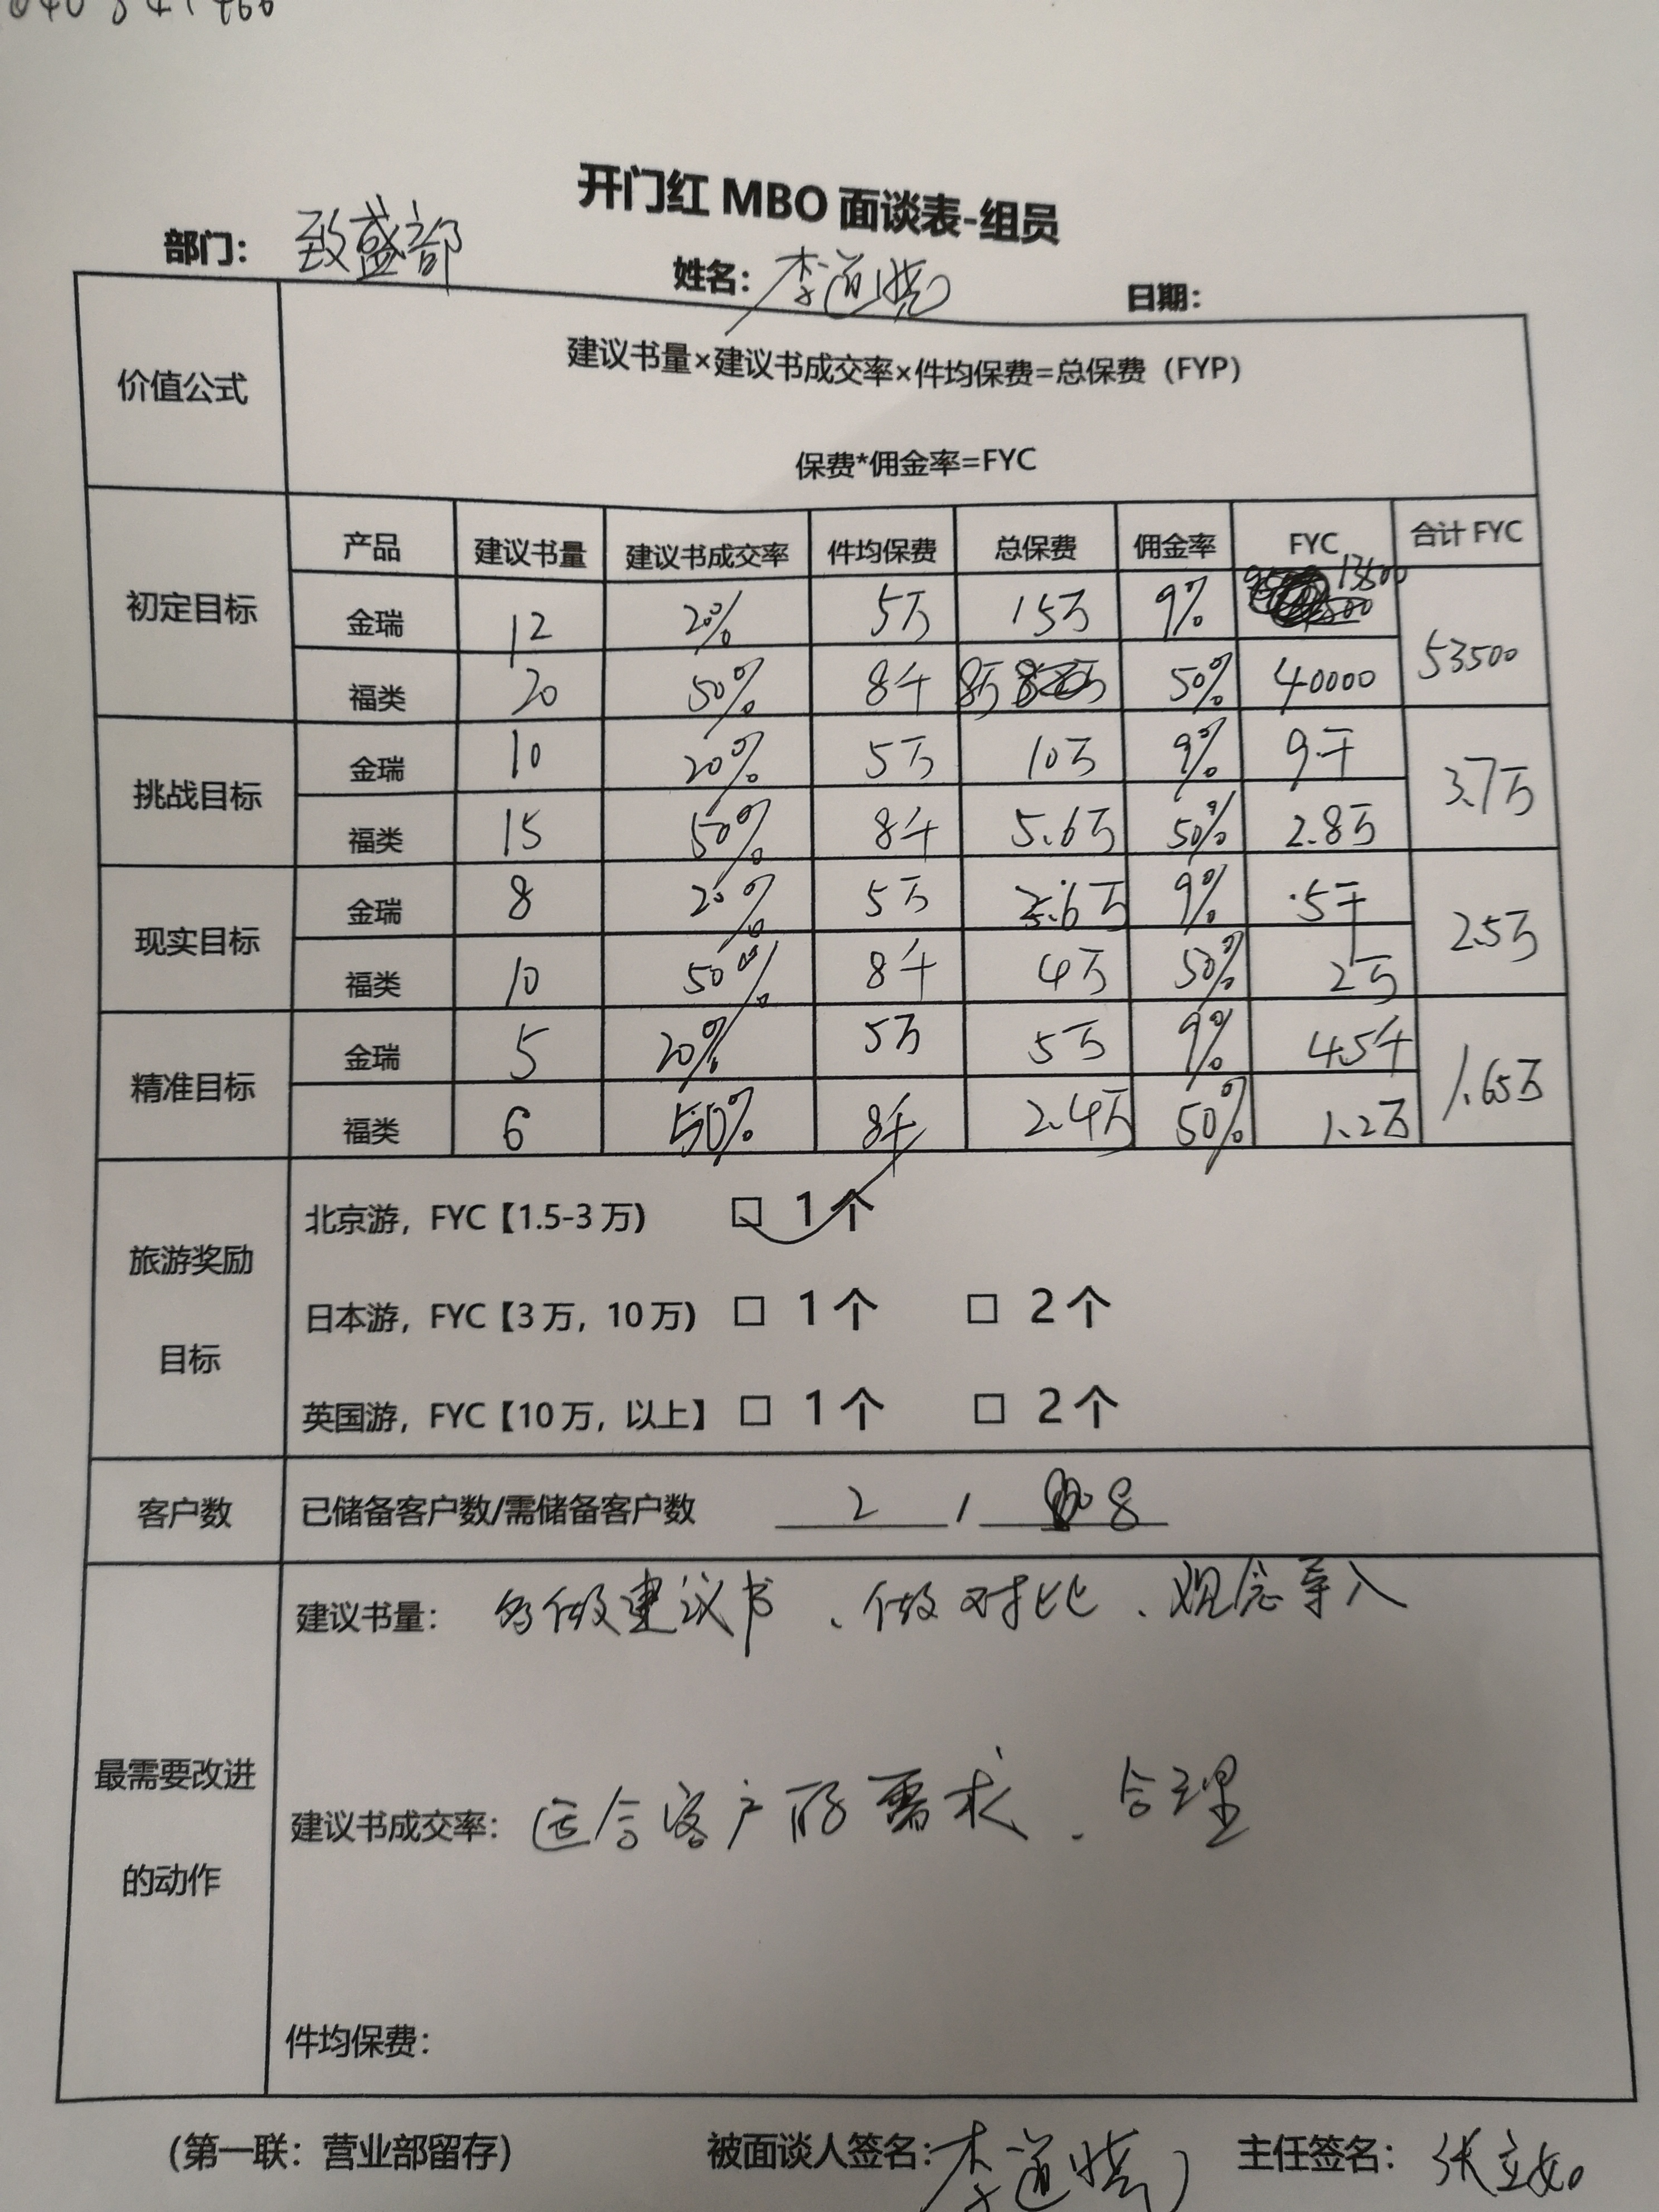 开门红 MBO 面谈表-组员
部门： 致盛部 姓名：李道 日期：
价值公式 建议书量×建议书成交率×件均保费=总保费（FYP）
保费*佣金率=FYC
初定目标 产品 建议书量 建议书成交率 件均保费 总保费 佣金率 FYC 合计 FYC
金瑞 12 20% 5万 15万 9% 13500 53500
福类 20 50% 8千 8万 50% 40000
挑战目标 金瑞 10 20% 5万 10万 9% 9千 3.7万
福类 15 50% 8千 5.6万 50% 2.8万
现实目标 金瑞 8 20% 5万 9% 5千 2.5万
福类 10 50% 8千 4万 50% 2万
精准目标 金瑞 5 20% 5万 5万 9% 4.5千 1.65万
福类 6 50% 8千 2.4万 50% 1.2万
旅游奖励目标 北京游，FYC【1.5-3 万） □ 1个
日本游，FYC【3 万，10 万） □ 1个 □ 2个
英国游，FYC【10 万，以上】 □ 1个 □ 2个
客户数 已储备客户数/需储备客户数 2 / 8
最需要改进的动作 建议书量： 多做建议书、做对比、观念导入
建议书成交率：适合客户的需求、合理
件均保费：
（第一联：营业部留存） 被面谈人签名：李道 主任签名：张立